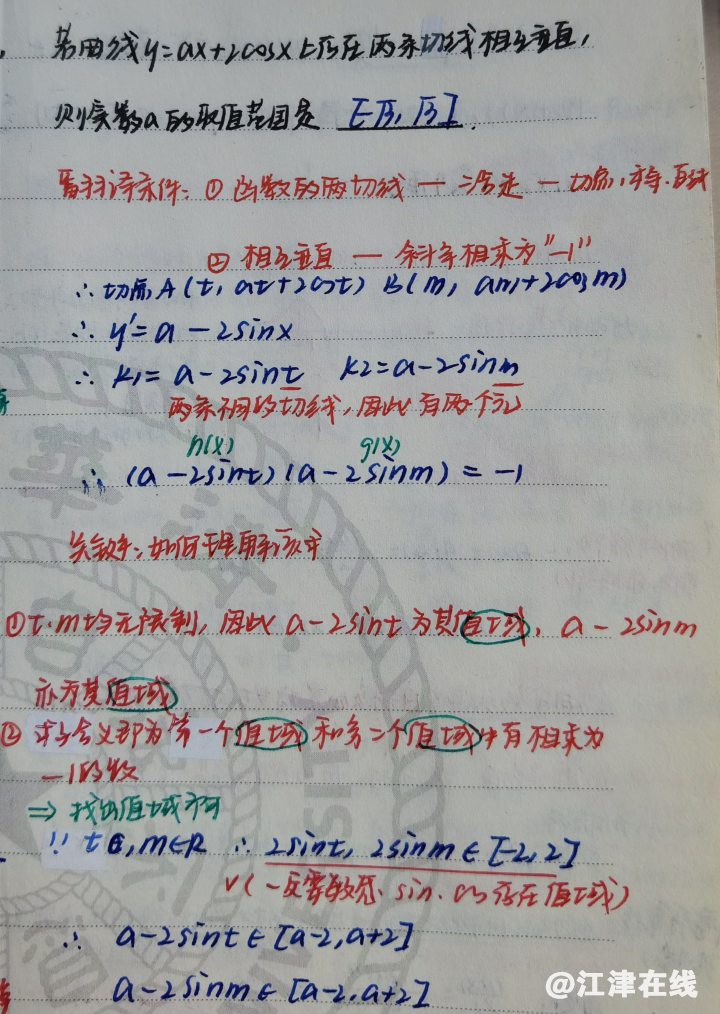 若曲线y=ax+2cosx上存在两条切线相互垂直,
则实数a的取值范围是 [-√3, √3].
翻译条件: ① 函数的两切线 — 三浩走 — 切点, 斜率, 直线
② 相互垂直 — 斜率相乘为"-1"
∴ 切点 A (t, at+2cost) B(m, am+2cosm)
∴ y'= a - 2sinx
∴ k1= a-2sint k2=a-2sinm
两条不同的切线, 因此有两个元
h(x) g(x)
∴ (a-2sint)(a-2sinm)=-1
关键: 如何理解该式
① t.m均无限制, 因此 a-2sint为其值域, a-2sinm
亦为其值域
② 式子含义即为第一个值域和第二个值域中有相乘为
-1的数
⇒ 找出值域即可
∵ t, m∈R ∴ 2sint, 2sinm∈[-2,2]
√(一定要敏感, sin. cos存在值域)
∴ a-2sint∈[a-2,a+2]
a-2sinm∈[a-2,a+2]
@江津在线